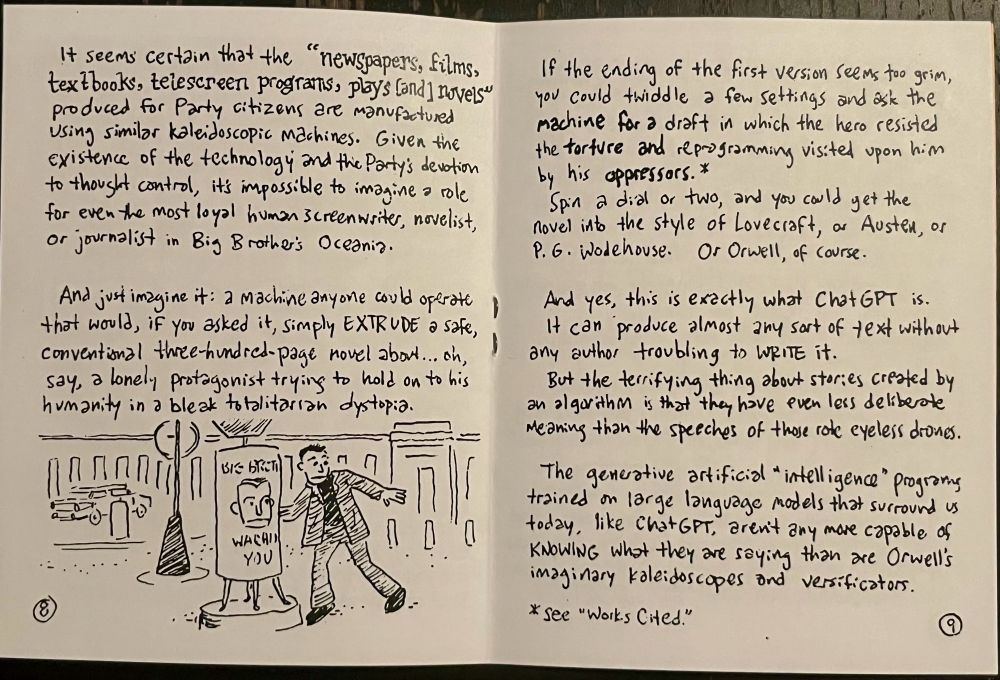 It seems certain that the "newspapers, films,
textbooks, telescreen programs, plays [and] novels"
produced for Party citizens are manufactured
using similar kaleidoscopic machines. Given the
existence of the technology and the Party's devotion
to thought control, it's impossible to imagine a role
for even the most loyal human screenwriter, novelist,
or journalist in Big Brother's Oceania.
And just imagine it: a machine anyone could operate
that would, if you asked it, simply EXTRUDE a safe,
conventional three-hundred-page novel about... oh,
say, a lonely protagonist trying to hold on to his
humanity in a bleak totalitarian dystopia.
BIG
YOU
8
If the ending of the first version seems too grim,
you could twiddle a few settings and ask the
machine for a draft in which the hero resisted
the torture and reprogramming visited upon him
by his oppressors.*
Spin a dial or two, and you could get the
novel into the style of Lovecraft, or Austen, or
P. G. Wodehouse. Or Orwell, of course.
And yes, this is exactly what ChatGPT is.
It can produce almost any sort of text without
any author troubling to WRITE it.
But the terrifying thing about stories created by
an algorithm is that they have even less deliberate
meaning than the speeches of those rote eyeless drones.
The generative artificial "intelligence" programs
trained on large language models that surround us
today, like ChatGPT, aren't any more capable of
KNOWING what they are saying than are Orwell's
imaginary kaleidoscopes and versificators.
*See "Works Cited."
9